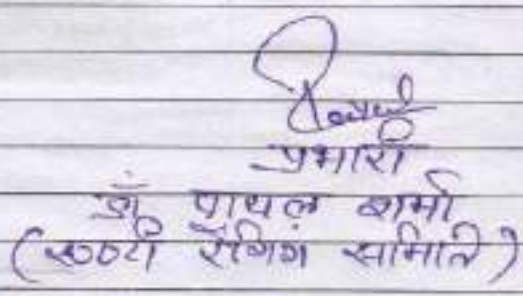 प्रभारी
डॉ पायल शर्मा
(एण्टी रैगिंग समिति)